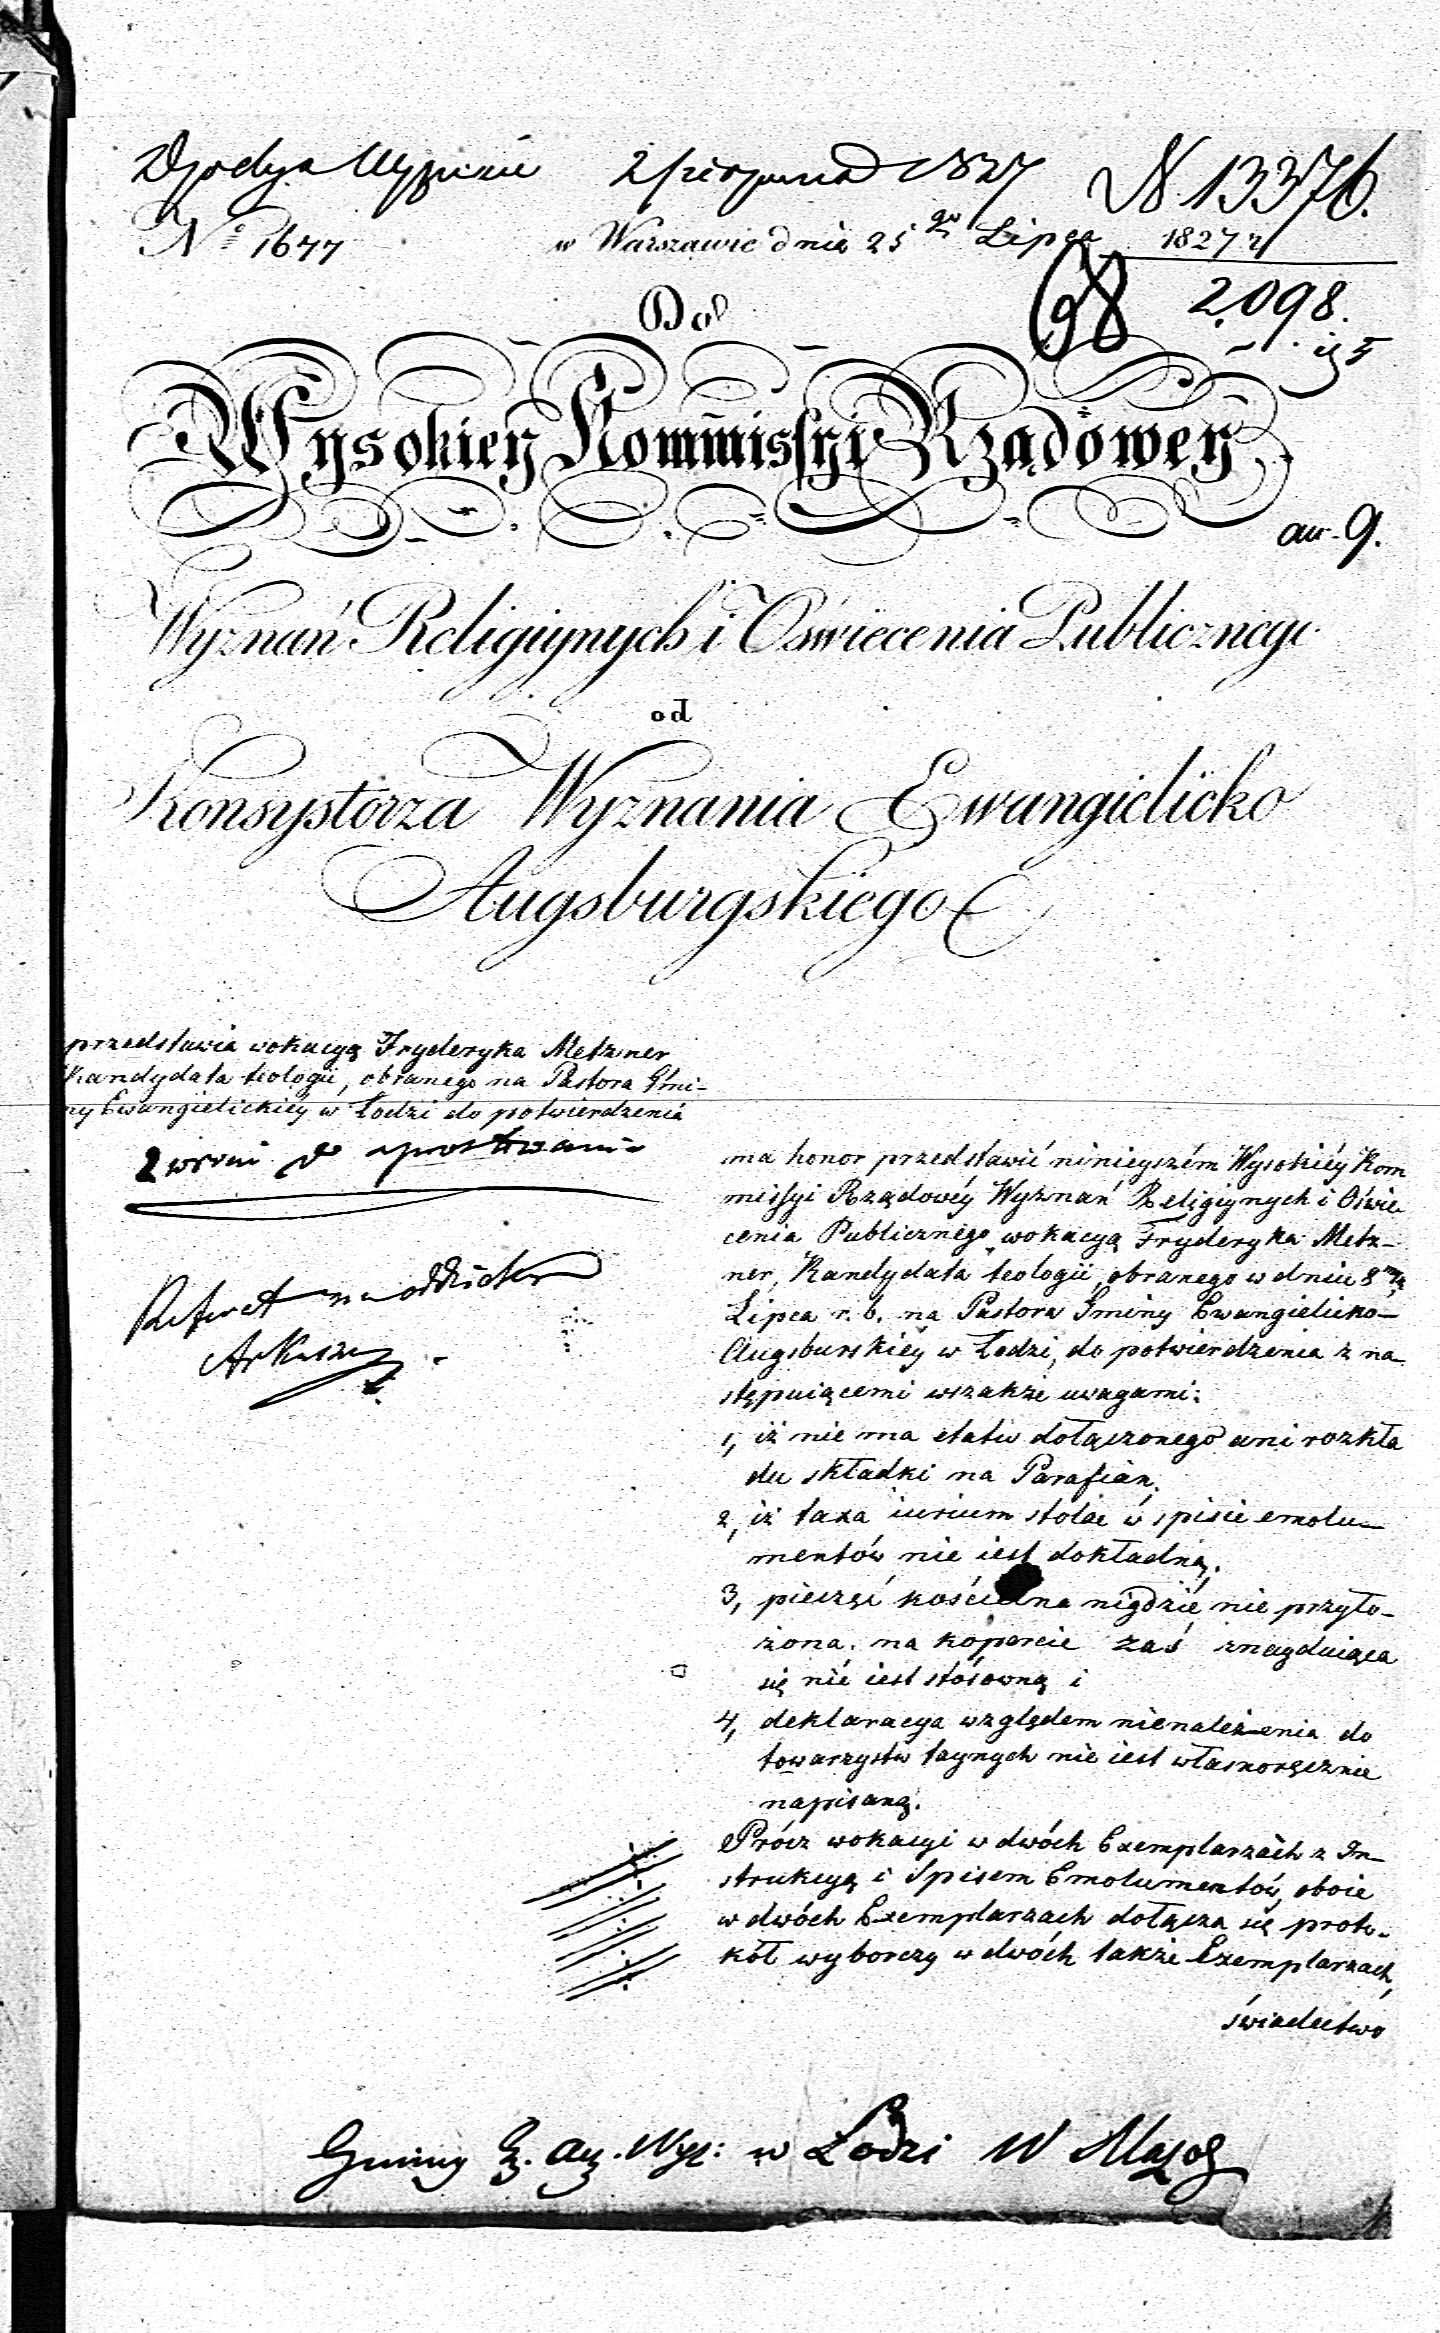 2 sierpnia 1827 N 13376.
No 1677 w Warszawie dnia 25go Lipca 1827 r
68 2098.
Do
Wysokiey Kommissyi Rządowey
an. 9.
Wyznań Religiynych i Oświecenia Publicznego
od
Konsystorza Wyznania Ewangielicko
Augsburgskiego
przedstawia wokacyą Fryderyka Metzner
Kandydata teologii, obranego na Pastora Gmi-
ny Ewangielickiéy w Łodzi do potwierdzenia
Referat na oddzielnym
Arkuszu
ma honor przedstawić ninieyszém Wysokiéy Kom
missyi Rządowéy Wyznań Religiynych i Oświe-
cenia Publicznégo wokacyą Fryderyka Metz-
ner, Kandydata teologii, obranego w dniu 8
Lipca r. b. na Pastora Gminy Ewangielicko-
Augsburskiéy w Łodzi, do potwierdzenia z na
stępuiącemi wszakże uwagami:
1, iż nie ma etatu dołączonego ani rozkła
du składki na Parafian.
2, iż taxa iurium stolae w spisie emolu-
mentów nie iest dokładną.
3, pieczęć kościelna nigdzie nie przyło-
żona. na kopercie zaś znayduiąca
się nie iest stósowną i
4, deklaracya względem nienależenia do
towarzystw taynych nie iest własnoręcznie
napisaną.
Prócz wokacyi w dwóch Exemplarzach z In-
strukcyą i Spisem Emolumentów, oboie
w dwóch Exemplarzach dołącza się proto-
kół wyborczy w dwóch także Exemplarzach,
świadectwo
Gminy Ew. Aug. Wyz: w Łodzi W Mazow